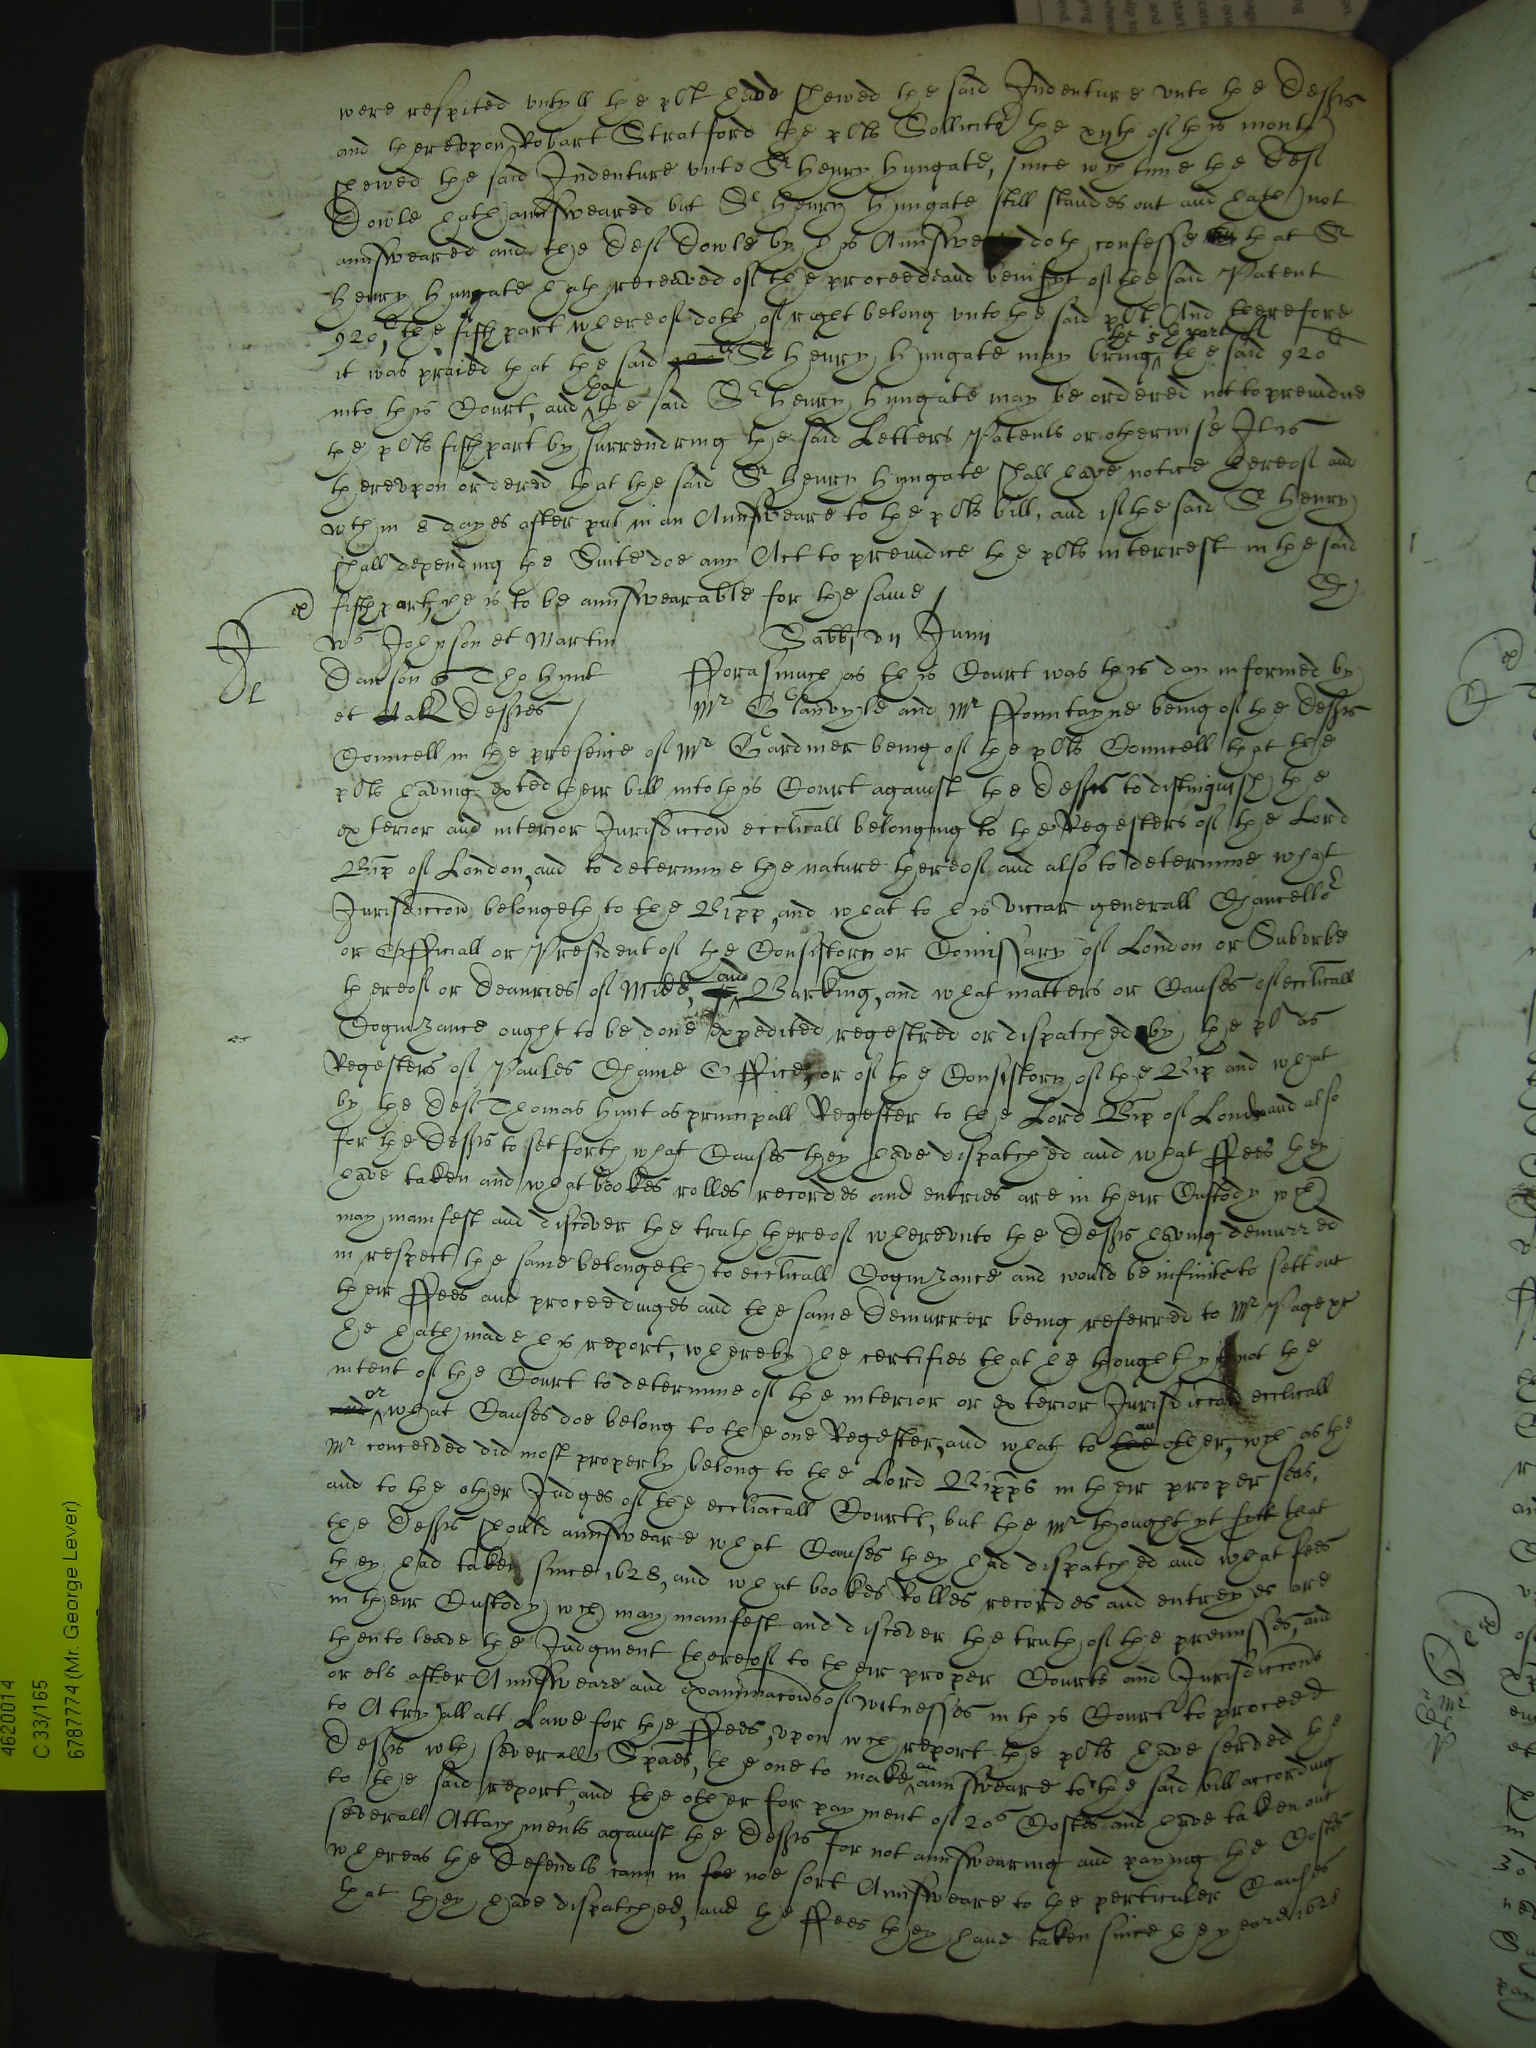 were respited vntyll the plt have shewed the said Indenture vnto the Defts
and therevpon Robart Stratford the plts Sollicitr the xijth of this month
shewed the said Indenture vnto Sr Henry Hungate, since wch tyme the Deft
Dowle hath aunsweared but Sr Henry Hungate still standes out and hath not
aunsweared and the Deft Dowle by his Aunsweare doth confesse that Sr
Henry Hungate hath receaved of the proceed and benifyt of the said Patent
920li, the fifth part whereof doth of right belong vnto the said plt And therefore
it was praied that the said Sr Henry Hungate may bring the 5th part of the said 920li
into this Court, and that the said Sr Henry Hungate may be ordered not to preiudice
the plts fifth part by surrendring the said Letters Patents or otherwise It is
therevpon ordered that the said Sr Henry Hungate shall have notice hereof and
wthin 8 dayes after put in an Aunsweare to the plts bill, and if the said Sr Henry
shall depending the Suite doe any Act to preiudice the plts interrest in the said
fifth part, he is to be aunswearable for the same /
Wm Johnson et Martin
Sabbi vij Junij
Dawson Tho Hunt
et al Deftes
Fforasmuch as this Court was this day informed by
Mr Glanvyle and Mr Ffountayne being of the Defts
Councell in the presence of Mr Gardiner being of the plts Councell that the
plts having exhibited their bill into this Court against the Defts to distinguish the
exterior and interior Jurisdiccon ecclicall belonging to the Regesters of the Lord
Bip of London, and to determine the nature thereof and also to determine what
Jurisdiccon belongeth to the Bipp, and what to his viccar generall Chancellor
or Officiall or President of the Consistory or Comissary of London or Suburbe
thereof or Deanries of Midd, and Barking, and what matters or Causes of ecclicall
Cognizance ought to be done expedited regestred or dispatched by the plts as
Regesters of Paules Chaine Office, or of the Consistory of the Bip and what
by the Deft Thomas Hunt as principall Regester to the Lord Bip of London and also
for the Defts to set forth what Causes they have dispatched and what Ffees they
have taken and what bookes rolles recordes and entries are in their Custody wch
may manifest and discover the truth thereof wherevnto the Defts having demurred
in respect the same belongeth to ecclicall Cognizance and would be infinite to sett out
their Ffees and proceedinges and the same Demurrer being referred to Mr Page
he hath made his report, whereby he certifies that he thought yt not the
intent of the Court to determine of the interior or exterior Jurisdiccon ecclicall
or what Causes doe belong to the one Regester, and what to another, wch as the
Mr conceived did most properly belong to the Lord Bipps in their proper seas,
and to the other Judges of the eccliacall Courts, but the Mr thought yt fitt that
the Defts should aunsweare what Causes they had dispatched and what fees
they had taken since 1628, and what bookes Rolles recordes and entreyes are
in their Custody wch may manifest and discover the truth of the premisses, and
then to leave the Judgment thereof to their proper Courts and Jurisdiccons
or els after Aunsweare and examinacons of witnesses in this Court to proceed
to A tryall att Lawe for the Ffees, vpon wch report the plts have served the
Defts wth severall Spaes, the one to make an aunsweare to the said bill according
to the said report, and the other for payment of 20s Costes and have taken out
severall Attachments against the Defts for not aunswearing and paying the Costes
whereas the Defendts cann in noe sort Aunsweare to the perticuler Causes
that they have dispatched, and the Ffees they have taken since the yeare 1628
4620014
C 33/165
6787774 (Mr. George Lever)